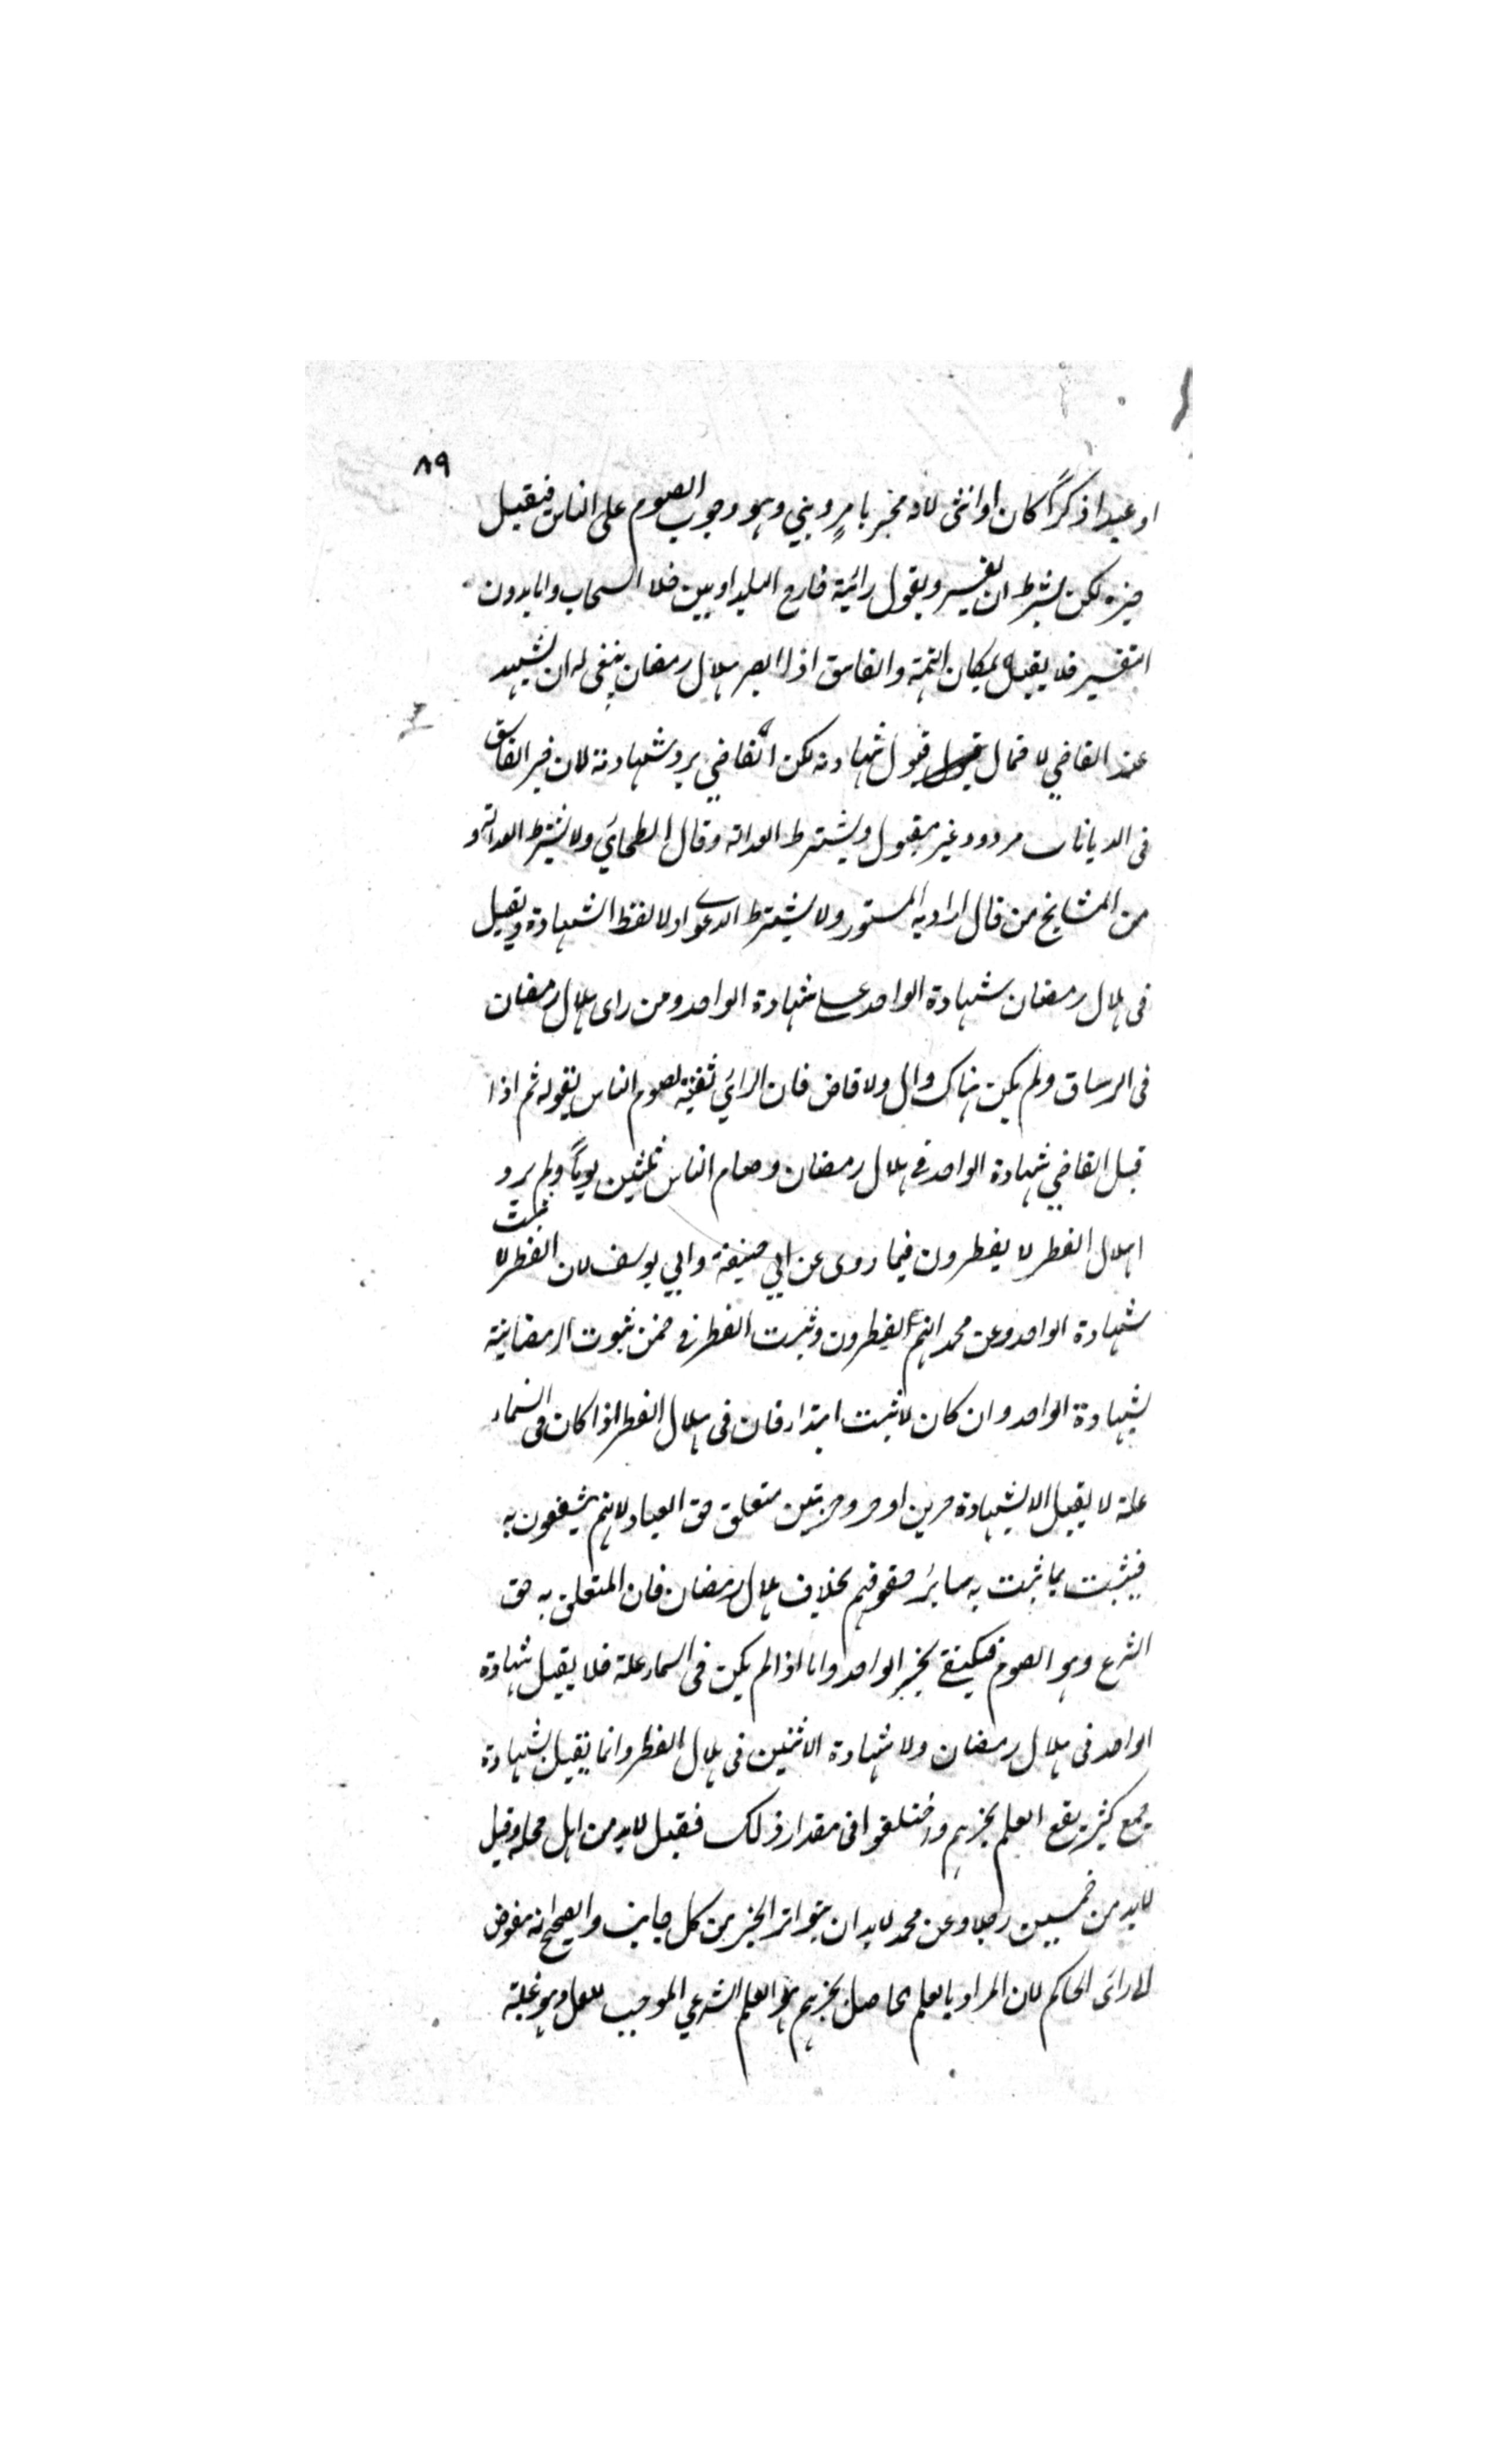 ٨٩
او عبدا ذكرًا كان او انثى لانه مخبر بامرٍ ديني وهو وجوب الصوم على الناس فيقبل
خبره لكن بشرط ان يفسر ويقول رائيته خارج البلد او بين خلال السحاب واما بدون
التفسير فلا يقبل لمكان التهمة والفاسق اذا ابصر هلال رمضان ينبغى له ان يشهد
عند القاضي لاحتمال قبول شهادته لكن القاضي يرد شهادته لان خبر الفاسق
فى الديانات مردود غير مقبول ويشترط العدالة وقال الطحاوي ولا يشترط العدالة و
من المشايخ من قال اراد به المستور ولا يشترط الدعوى ولا لفظ الشهادة ويقبل
فى هلال رمضان شهادة الواحد على شهادة الواحد ومن راى هلال رمضان
فى الرساق ولم يكن هناك وال ولا قاض فان الرائي ثقة يصوم الناس بقوله ثم اذا
قبل القاضي شهادة الواحد فى هلال رمضان وصام الناس ثلثين يوماً ولم يرو
اهلال الفطر لا يفطرون فيما روى عن ابي حنيفة وابي يوسف لان الفطر لا يثبت
شهادة الواحد وعن محمد انهم يفطرون وثبت الفطر فى ضمن ثبوت الرمضانية
بشهادة الواحد وان كان لا ثبت ابتدا فان فى هلال الفطر اذا كان فى السماء
علة لا يقبل الا بشهادة حرين او حر وحرتين متعلق حق العباد لانهم ينتفعون به
فيثبت بما ثبت به سائر حقوقهم بخلاف هلال رمضان فان المتعلق به حق
الشرع وهو الصوم فيكتفى بخبر الواحد واما اذا لم يكن فى السماء علة فلا يقبل شهادة
الواحد فى هلال رمضان ولا شهادة الاثنين فى هلال الفطر وانما يقبل شهادة
جمع كثير يقع العلم بخبرهم واختلفوا فى مقدار ذلك فقيل لابد من اهل محلة وقيل
لابد من خمسين رجلا وعن محمد لابد ان يتواتر الخبر من كل جانب والصحيح انه مفوض
الا رائى الحاكم لان المراد بالعلم الحاصل بخبرهم هو العلم الشرعي الموجب للعمل وهو غلبة